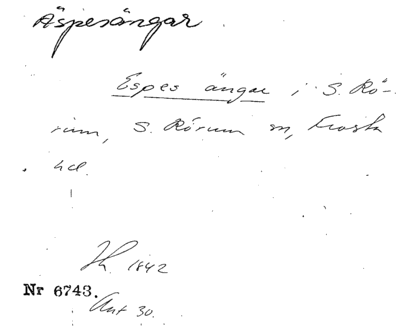 Äspesängar
Espes ängar i S. Rö-
rum, S. Rörum sn, Frosta
hd.
1842
Nr 6743.
Ant 30.